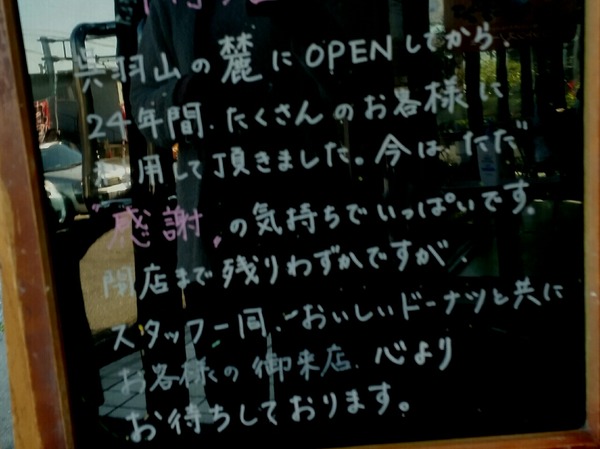 呉羽山の麓にOPENしてから、
24年間、たくさんのお客様に
利用して頂きました。今はただ
"感謝"の気持ちでいっぱいです。
閉店まで残りわずかですが、
スタッフ一同、おいしいドーナツと共に
お客様の御来店、心より
お待ちしております。